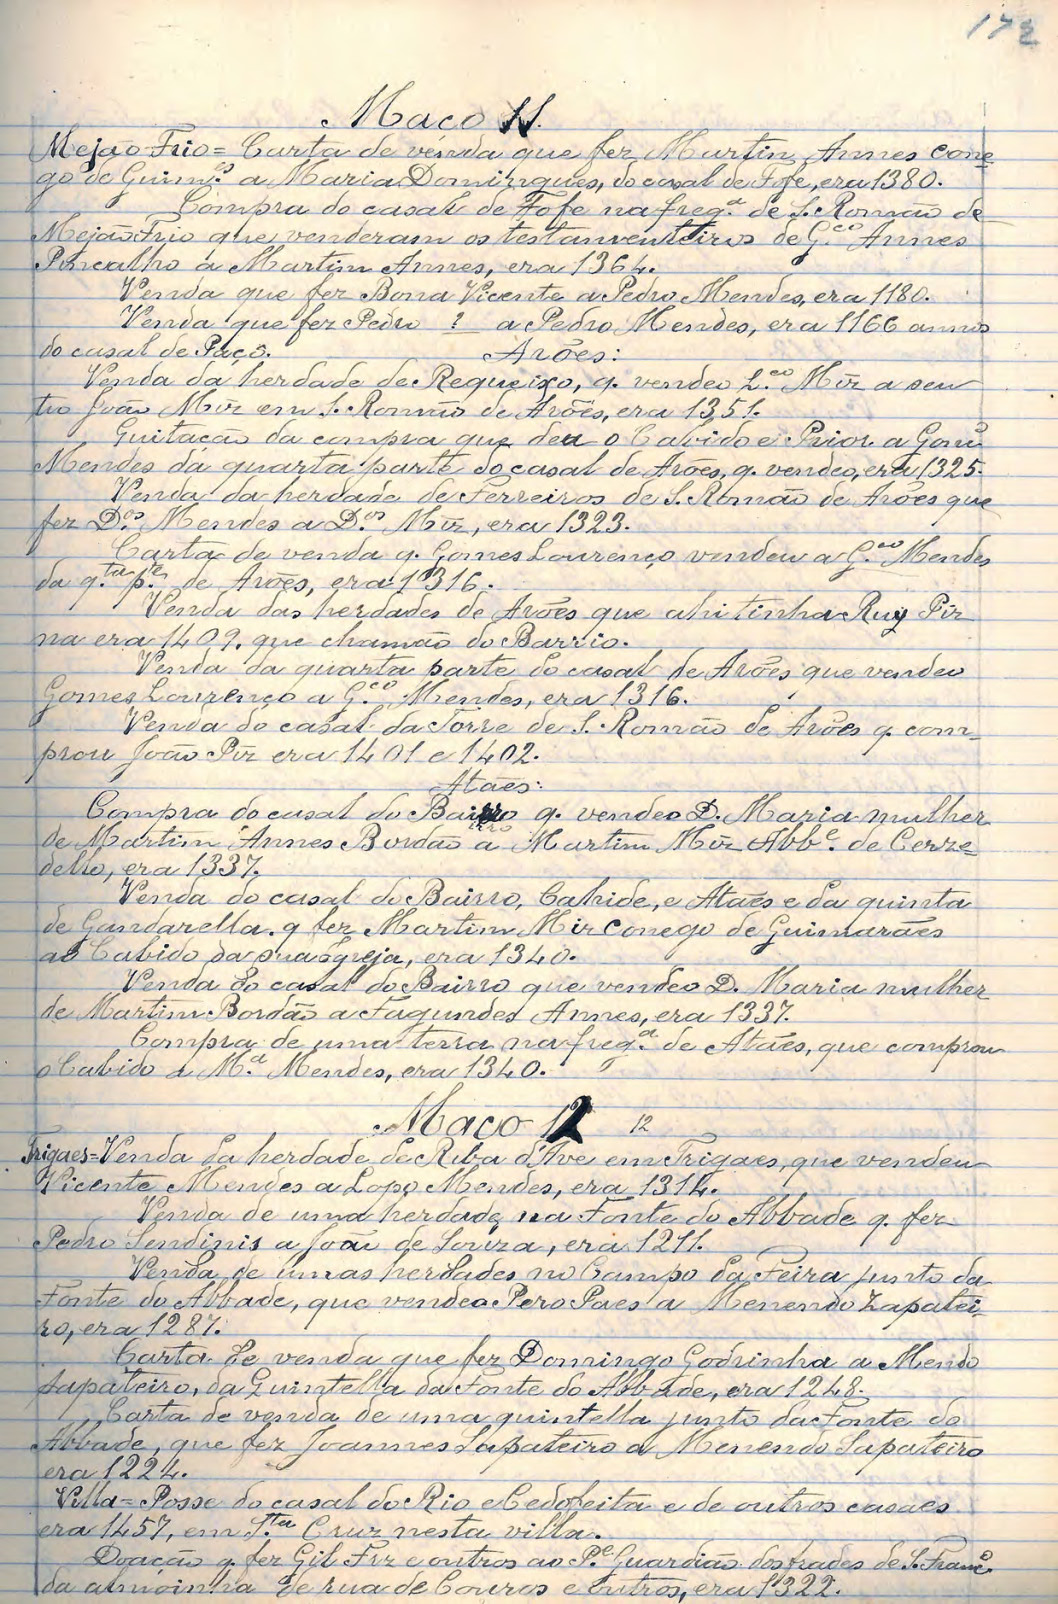 172
Maço 11.
Mejão-Frio = Carta de venda que fez Martim Annes cone=
go de Guim.es a Maria Domingues, do casal de Fofe, era 1380.
Compra do casal de Fofe na freg.a de S. Romão de
Mejão Frio que venderam os testamenteiros de G.co Annes
a Martim Annes, era 1364.
Venda que fez Bona Vicente a Pedro Mendes, era 1180.
Venda que fez Pedro ? a Pedro Mendes, era 1166 annos
do casal de Paço.
Arões:
Venda da herdade de Requeixo, q. vendeo L.co Miz a seu
tio João Miz em S. Romão de Arões, era 1351.
Quitação da compra que deu o Cabido e Prior a Gon.o
Mendes da quarta parte do casal de Arões, q. vendeo, era 1325.
Venda da herdade de Ferreiros de S. Romão de Arões que
fez D.os Mendes a D.os Miz, era 1323.
Carta de venda q. Gomes Lourenço vendeu a G.co Mendes
da q.ta p.te de Arões, era 1316.
Venda das herdades de Arões que ahi tinha Ruy Pir
na era 1409. que chamão do Barrio.
Venda da quarta parte do casal de Arões que vendeo
Gomes Lourenço a G.co Mendes, era 1316.
Venda do casal da Torre de S. Romão de Arões q. com=
prou João Piz era 1401 e 1402.
Atães:
Compra do casal do Bairro q. vendeo D. Maria mulher
de Martim Annes Bordão a Martim Miz Abb.e de Cerze=
dello, era 1337.
Venda do casal do Bairro, Cahide, e Atães e da quinta
de Gandarella. q fez Martim Miz Conego de Guimarães
ao Cabido da sua Egreja, era 1340.
Venda do casal do Bairro que vendeo D. Maria mulher
de Martim Bordão a Fagundes Annes, era 1337.
Compra de uma terra na freg.a de Atães, que comprou
o Cabido a M.a Mendes, era 1340.
Maço 12 12
Frigaes = Venda da herdade de Riba d'Ave em Frigaes, que vendeu
Vicente Mendes a Lopo Mendes, era 1314.
Venda de uma herdade na Fonte do Abbade q. fez
Pedro Sendinis a João de Souza, era 1211.
Venda de umas herdades no Campo da Feira junto da
Fonte do Abbade, que vendeo Pero Paes a Menendo Zapatei-
ro, era 1287.
Carta de venda que fez Domingo Godrinha a Mendo
Sapateiro, da Quintella da Fonte do Abbade, era 1248.
Carta de venda de uma quintella junto da Fonte do
Abbade, que fez Joannes Sapateiro a Menendo Sapateiro
era 1224.
Villa = Posse do casal do Rio e Cedofeita e de outros casaes
era 1457, em S.ta Cruz nesta villa.
Doação q. fez Gil Frz e outros ao P.e Guardião dos frades de S. Franc.o
da almoinha de rua de Couros e outros, era 1322.